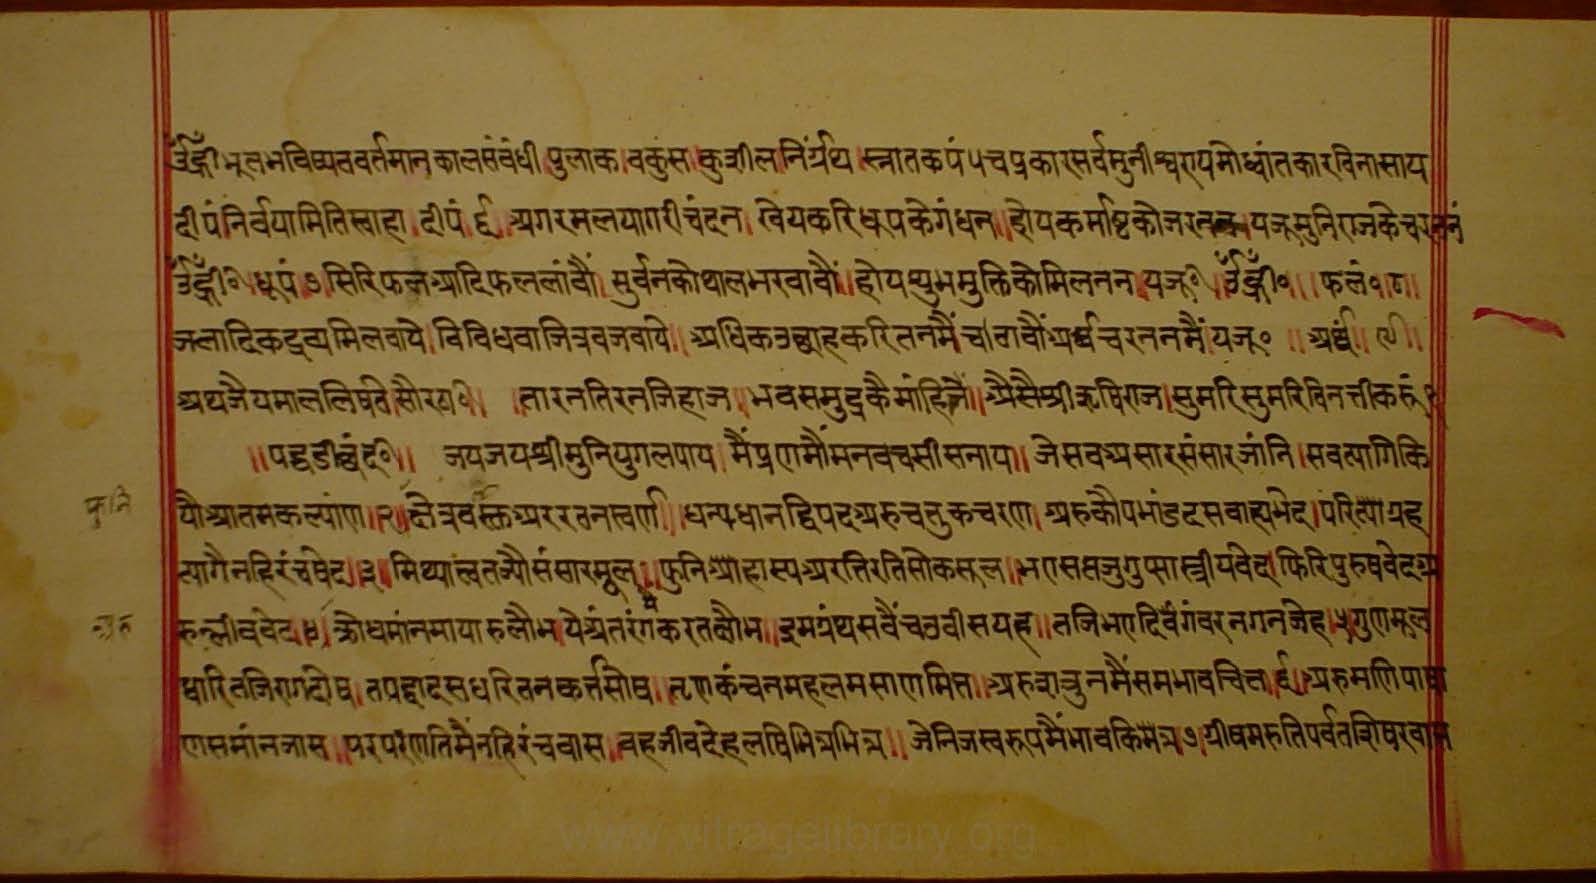 ॐह्रीं भूतभविष्यतवर्तमानकालसंबंधी।पुलाक।वकुस।कुशील।निर्ग्रंथ।स्नातकपंचप्रकारसर्वमुनीश्वरायमोध्वांतकारविनासाय
दीपंनिर्वपामितिस्वाहा।दीपं।६।अगरमलयागरीचंदन।खेयकरिधूपकेगंधन॥होयकर्माष्टकोजरतन।यजूमुनिराजकेचरननं
ॐह्रीं॰।धूपं।७।सिरिफलआदिफललांवौं।सुर्वनकोथालभरवावौं॥होयशुभमुक्तिकोमिलनन।यजू॰।ॐह्रीं॰॥फलं॰।८॥
जलादिकद्रव्यमिलवाये।विविधवाजित्रवजवाये॥अधिकउछाहकरितनमैंचावावौंअर्घचरननमैं।यजू॰॥अर्घं॥९॥
अथजैयमाललिषते।सौरठा॥तारनतिरनजिहाज।भवसमुद्रकैमांहिनैं॥अैसैश्रीऋषिराज।सुमरिसुमरिविनत्तीकरुं।१
॥पद्धडीछंद॰॥जयजयश्रीमुनियुगलपाय।मैंप्रणमौंमनवचसीसनाय॥जेसवअसारसंसारजांनि।सवत्यागिकि
यौआतमकल्यांण।२।क्षेत्रवस्तअररतनस्वर्ण।धन्यधानद्विपदअरुचतुकचरण।अरुकौपभांडदसवाह्यभेद।परित्याग्रह
त्यागैनहिरंचषेद।३।मिथ्यात्वतज्यौसंसारमूल।फुनिआहास्यअरतिरतिसोकसूल॥भयसप्तजुगुप्सास्त्रीयवेद।फिरिपुरुषवेदअ
रुक्लीववेद।४।क्रोधमांनमायारुलौभ।येअंतरंगमैकरतक्षौभ॥इमग्रंथसवैंचउवीसयह॥तजिभएदिगंवरनगनजेह।५।गुणमूल
धारितजिरागदोष।तपद्वादसधरितनकर्त्तसोष॥तृणकंचनमहलमसाणमित्त॥अरुशत्रुनमैंसमभावचित्त।६।अरुमणिपाषा
णसमांनजास॥परपरंणतिमैंनहिरंचवास।वहजीवदेहलषिभिन्नभिन्न॥जेनिजस्वरुपमैंभावकिन्न।७।ग्रीषमरुतिपर्वतशिषरवास
फुनि
अरु
www.vitragelibrary.org